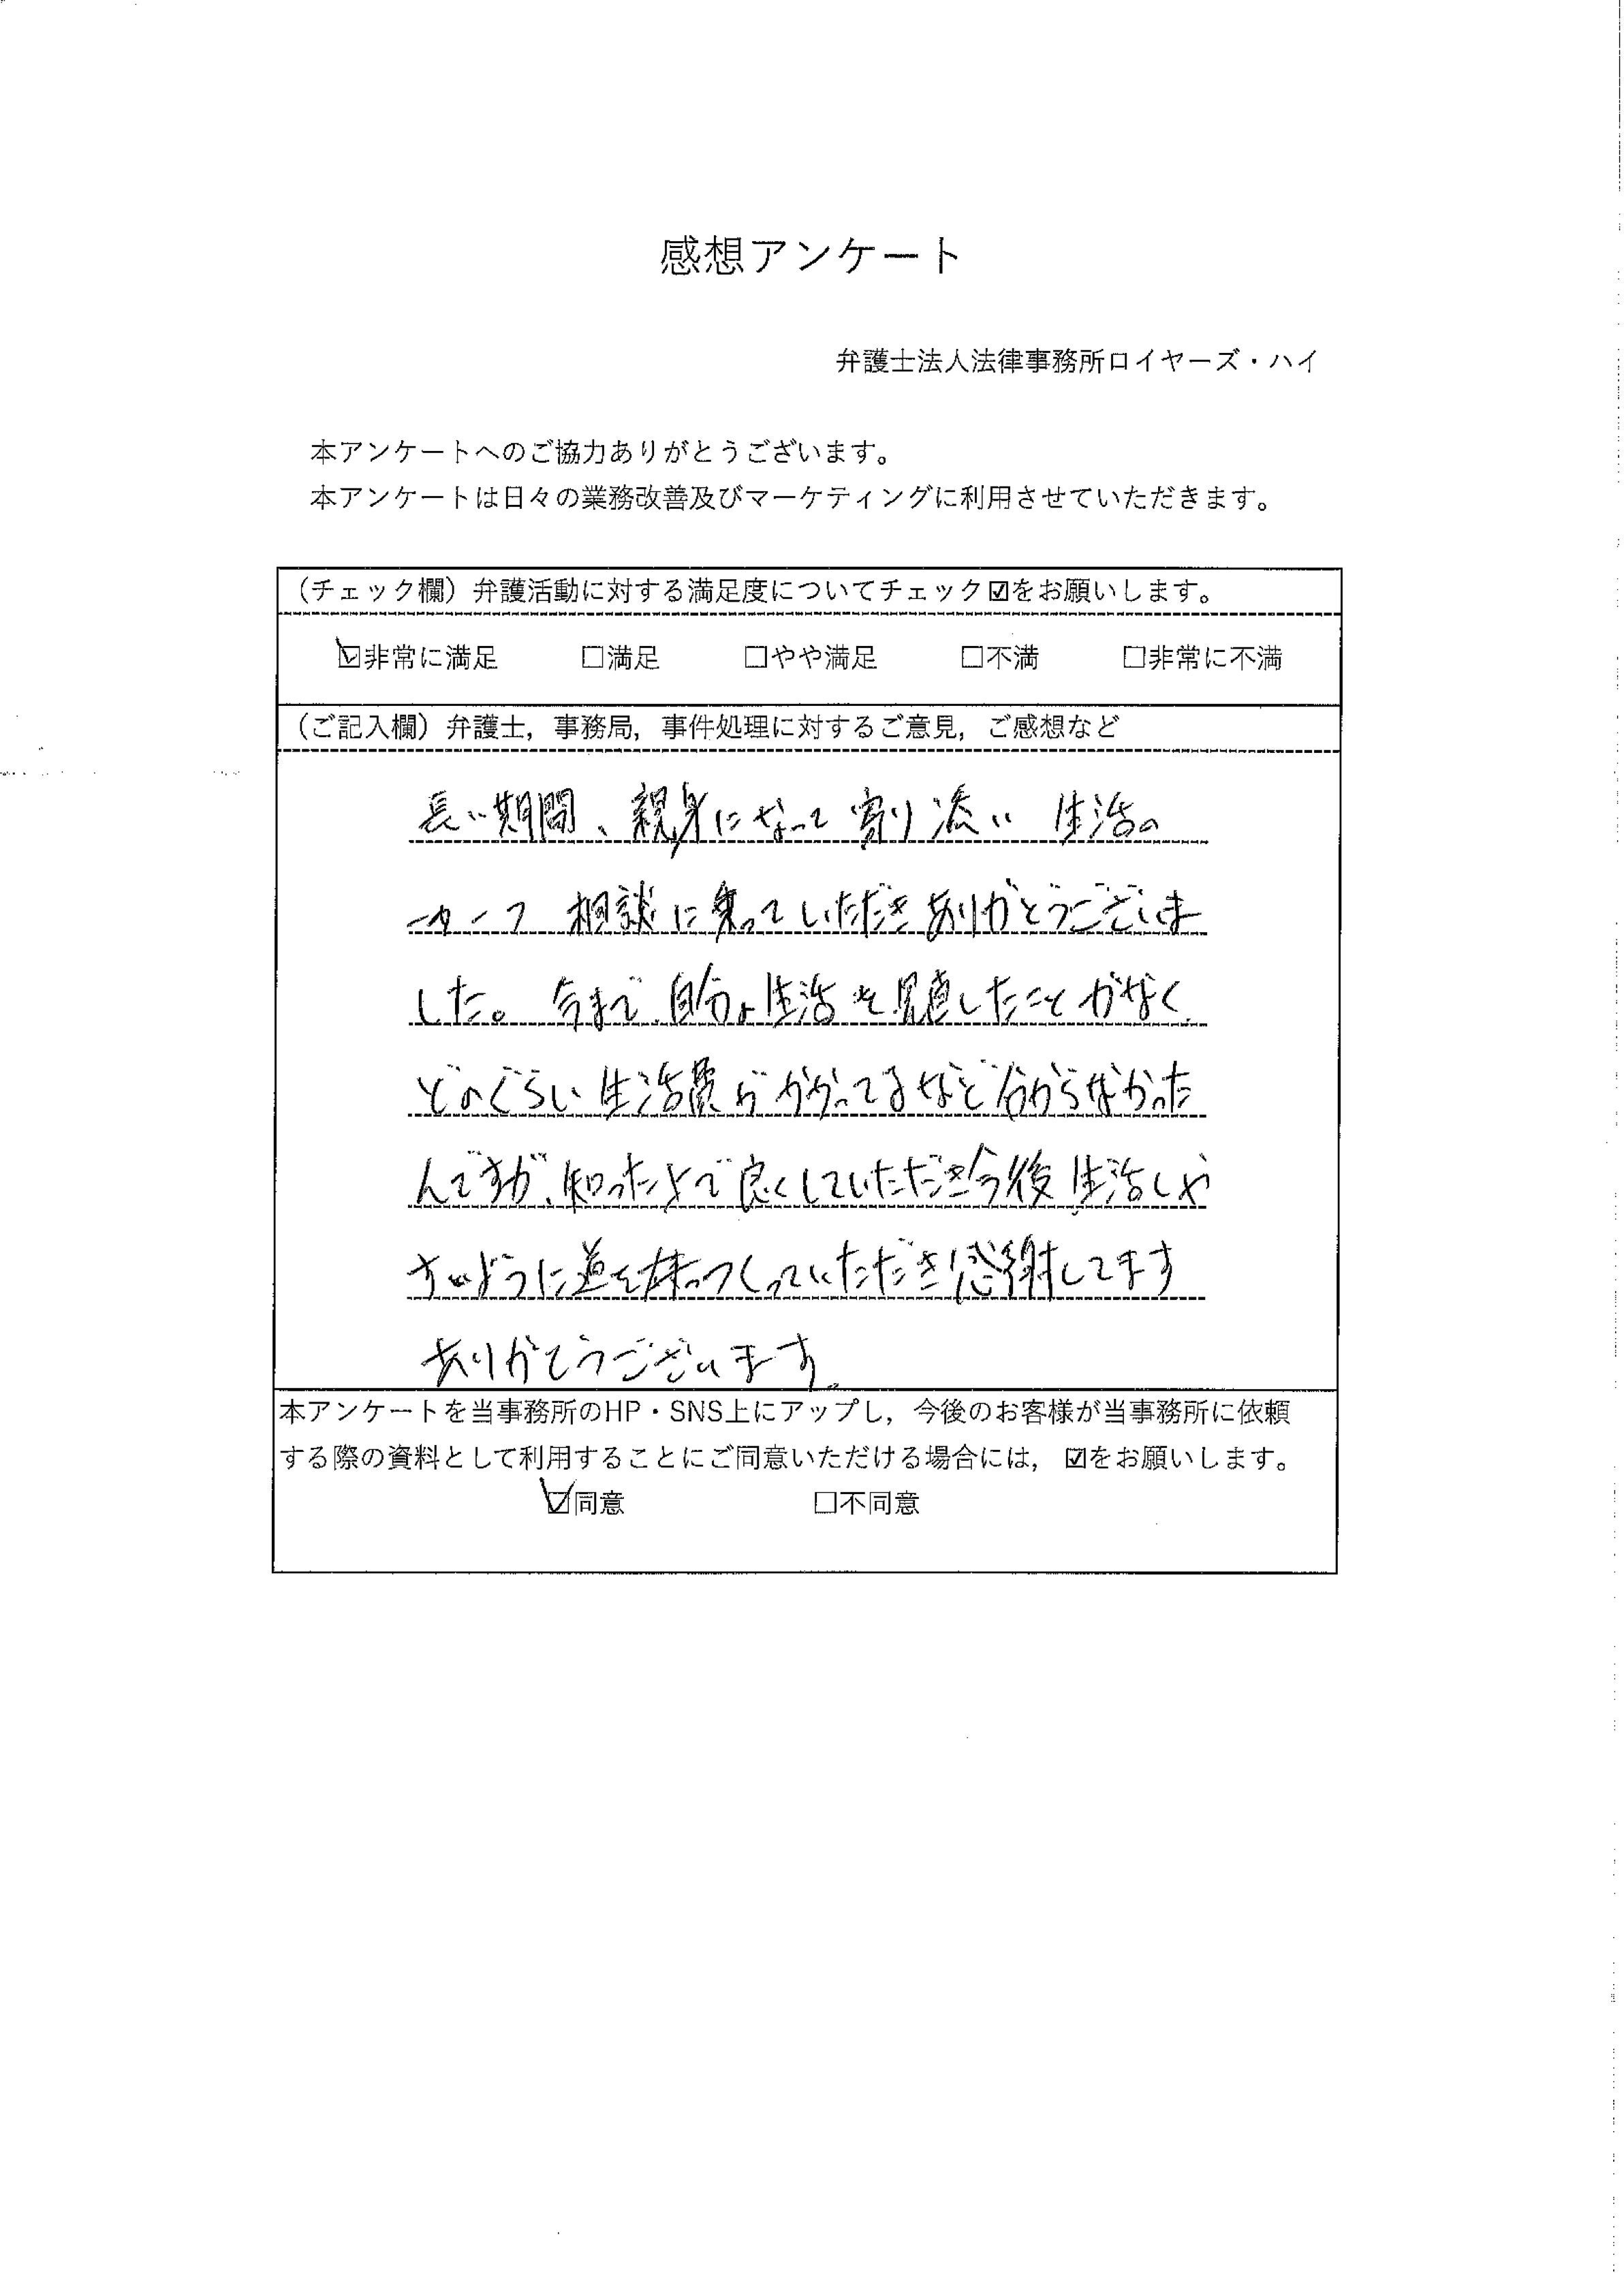 感想アンケート
弁護士法人法律事務所ロイヤーズ・ハイ
本アンケートへのご協力ありがとうございます。
本アンケートは日々の業務改善及びマーケティングに利用させていただきます。
（チェック欄）弁護活動に対する満足度についてチェック☑をお願いします。
☑非常に満足 □満足 □やや満足 □不満 □非常に不満
（ご記入欄）弁護士，事務局，事件処理に対するご意見，ご感想など
長い期間、親身になって寄り添い 生活の
一つ一つ 相談に乗っていただきありがとうございま
した。今まで、自分の生活を見直したことがなく
どのぐらい生活費がかかってるなど分からなかった
んですが、知ったことで良くしていただき今後生活しや
すいように道を つくっていただき感謝してます
ありがとうございます。
本アンケートを当事務所のHP・SNS上にアップし，今後のお客様が当事務所に依頼
する際の資料として利用することにご同意いただける場合には，☑をお願いします。
☑同意 □不同意